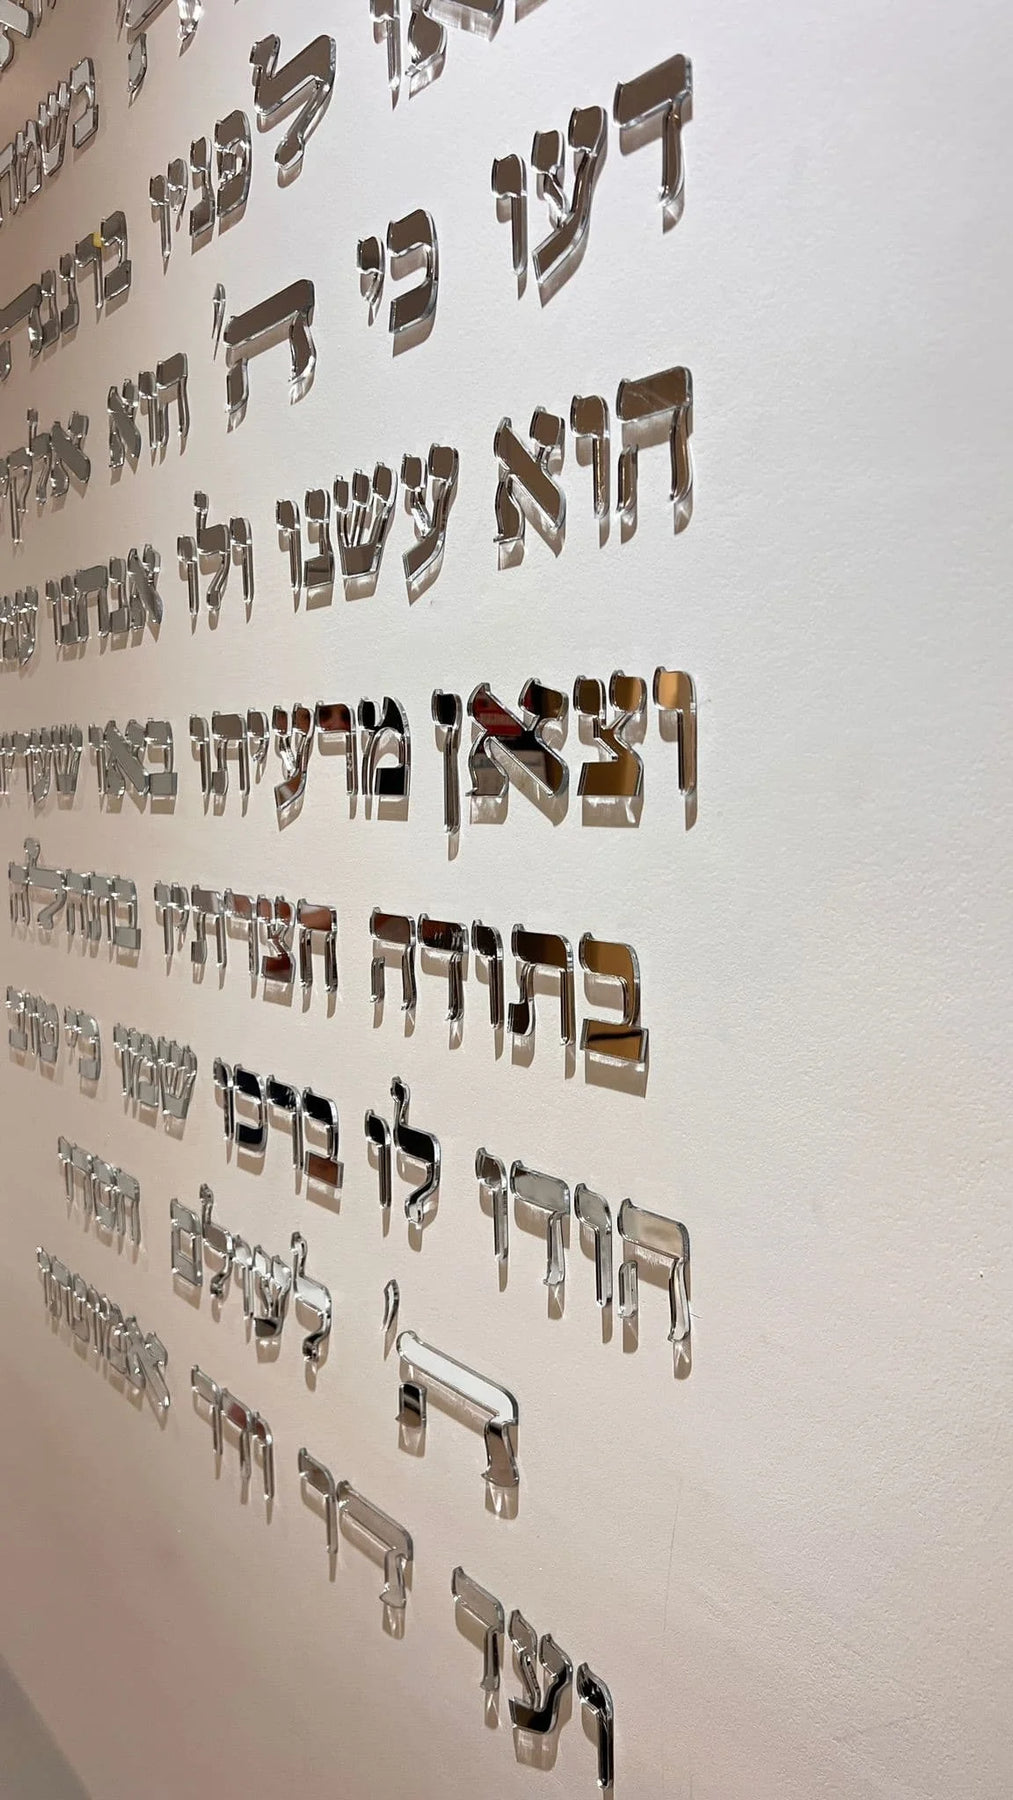 בשמחה
לפניו ברננה
דעו כי ה' הוא
הוא עשנו ולו אנחנו
וצאן מרעיתו באו שעריו
בתודה חצרתיו בתהלה
הודו לו ברכו שמו כי טוב
ה' לעולם חסדו
ועד דר ודר אמונתו